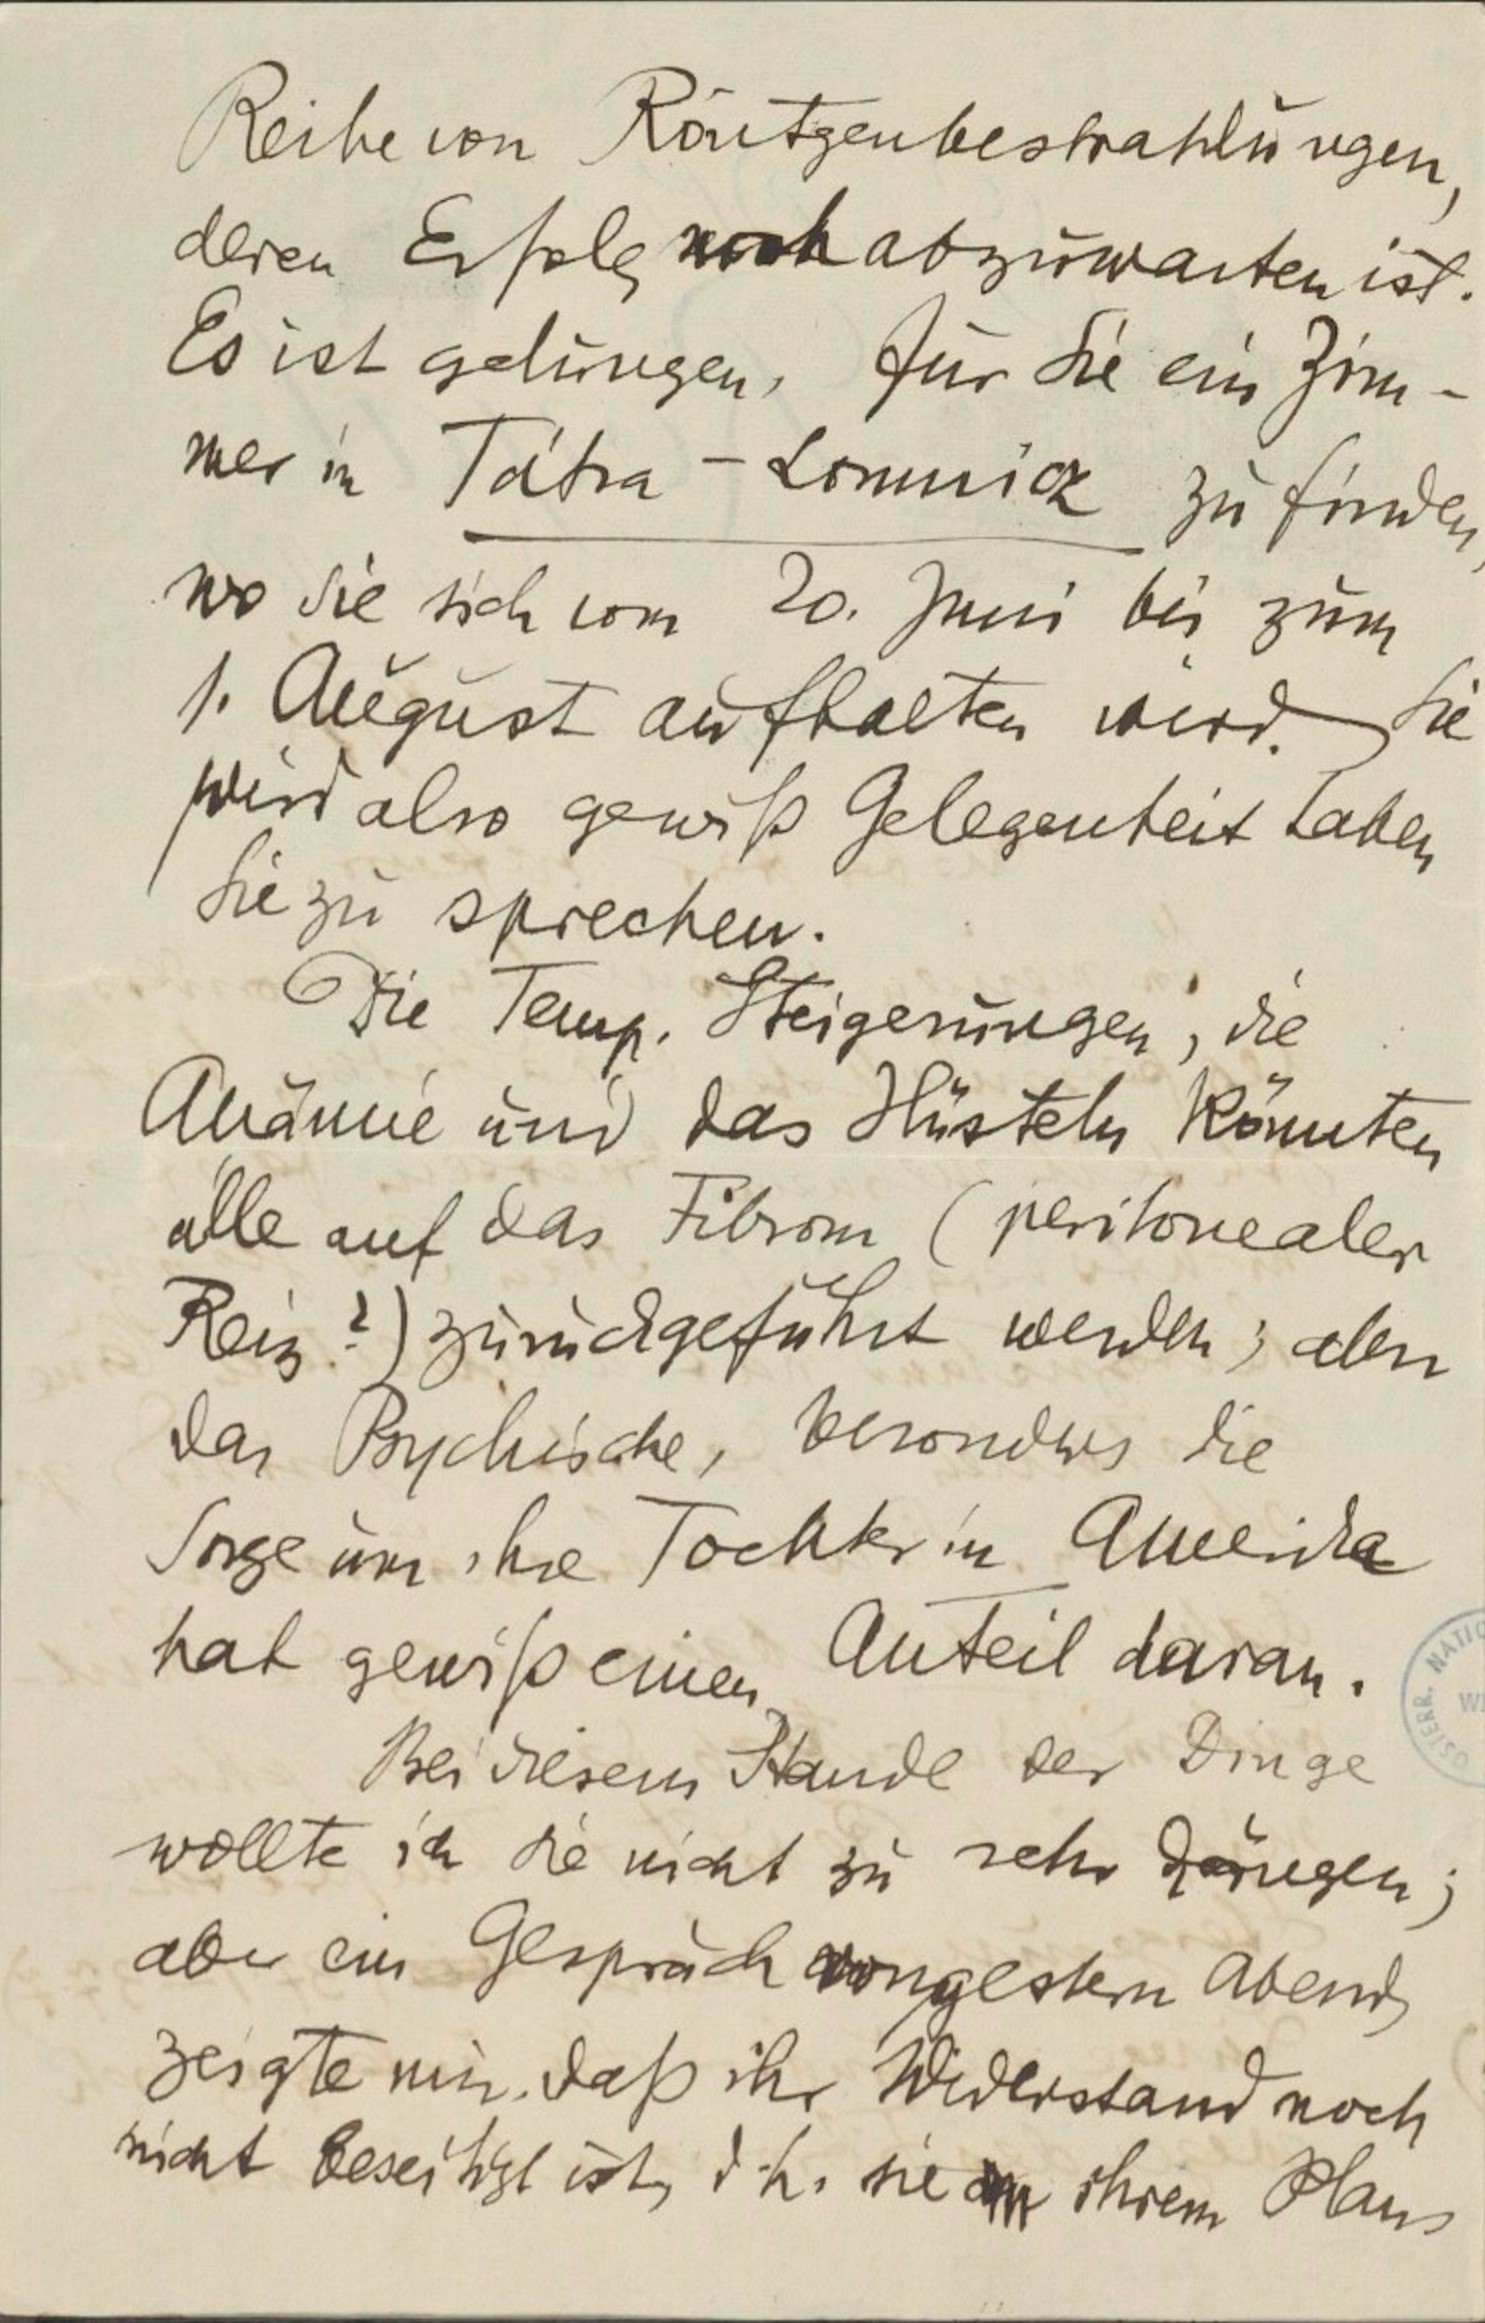 Reihe von Röntgenbestrahlungen,
deren Erfolg noch abzuwarten ist.
Es ist gelungen, für Sie ein Zim-
mer in Tátra-Lomnicz zu finden,
wo sie sich vom 20. Juni bis zum
1. August aufhalten wird. Sie
wird also gewiß Gelegenheit haben
Sie zu sprechen.
Die Temp. Steigerungen, die
Anämie und das Hüsteln könnten
alle auf das Fibrom (peritonealer
Reiz?) zurückgeführt werden; aber
das Psychische, besonders die
Sorge um ihre Tochter in Amerika
hat gewiß einen Anteil daran.
Bei diesem Stande der Dinge
wollte ich sie nicht zu sehr drängen;
aber ein Gespräch von gestern Abend
zeigte mir, daß ihr Widerstand noch
nicht beseitigt ist, d.h. sie an ihrem Plans
ÖSTERR. NATIO
WI